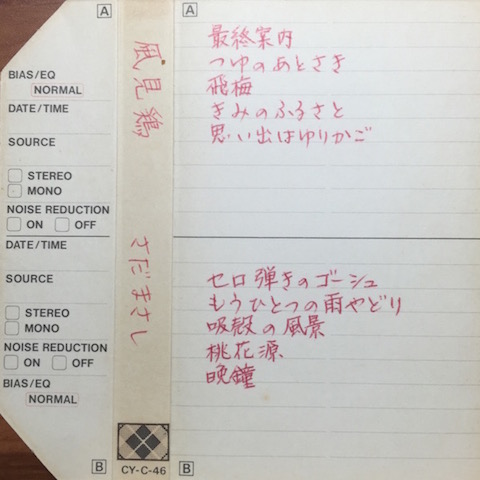 A
BIAS/EQ
NORMAL
DATE/TIME
SOURCE
STEREO
MONO
NOISE REDUCTION
ON OFF
DATE/TIME
SOURCE
STEREO
MONO
NOISE REDUCTION
ON OFF
BIAS/EQ
NORMAL
B
風見鶏
さだまさし
CY-C-46
A
最終案内
つゆのあとさき
飛梅
きみのふるさと
思い出はゆりかご
セロ弾きのゴーシュ
もうひとつの雨やどり
吸殻の風景
桃花源
晩鐘
B